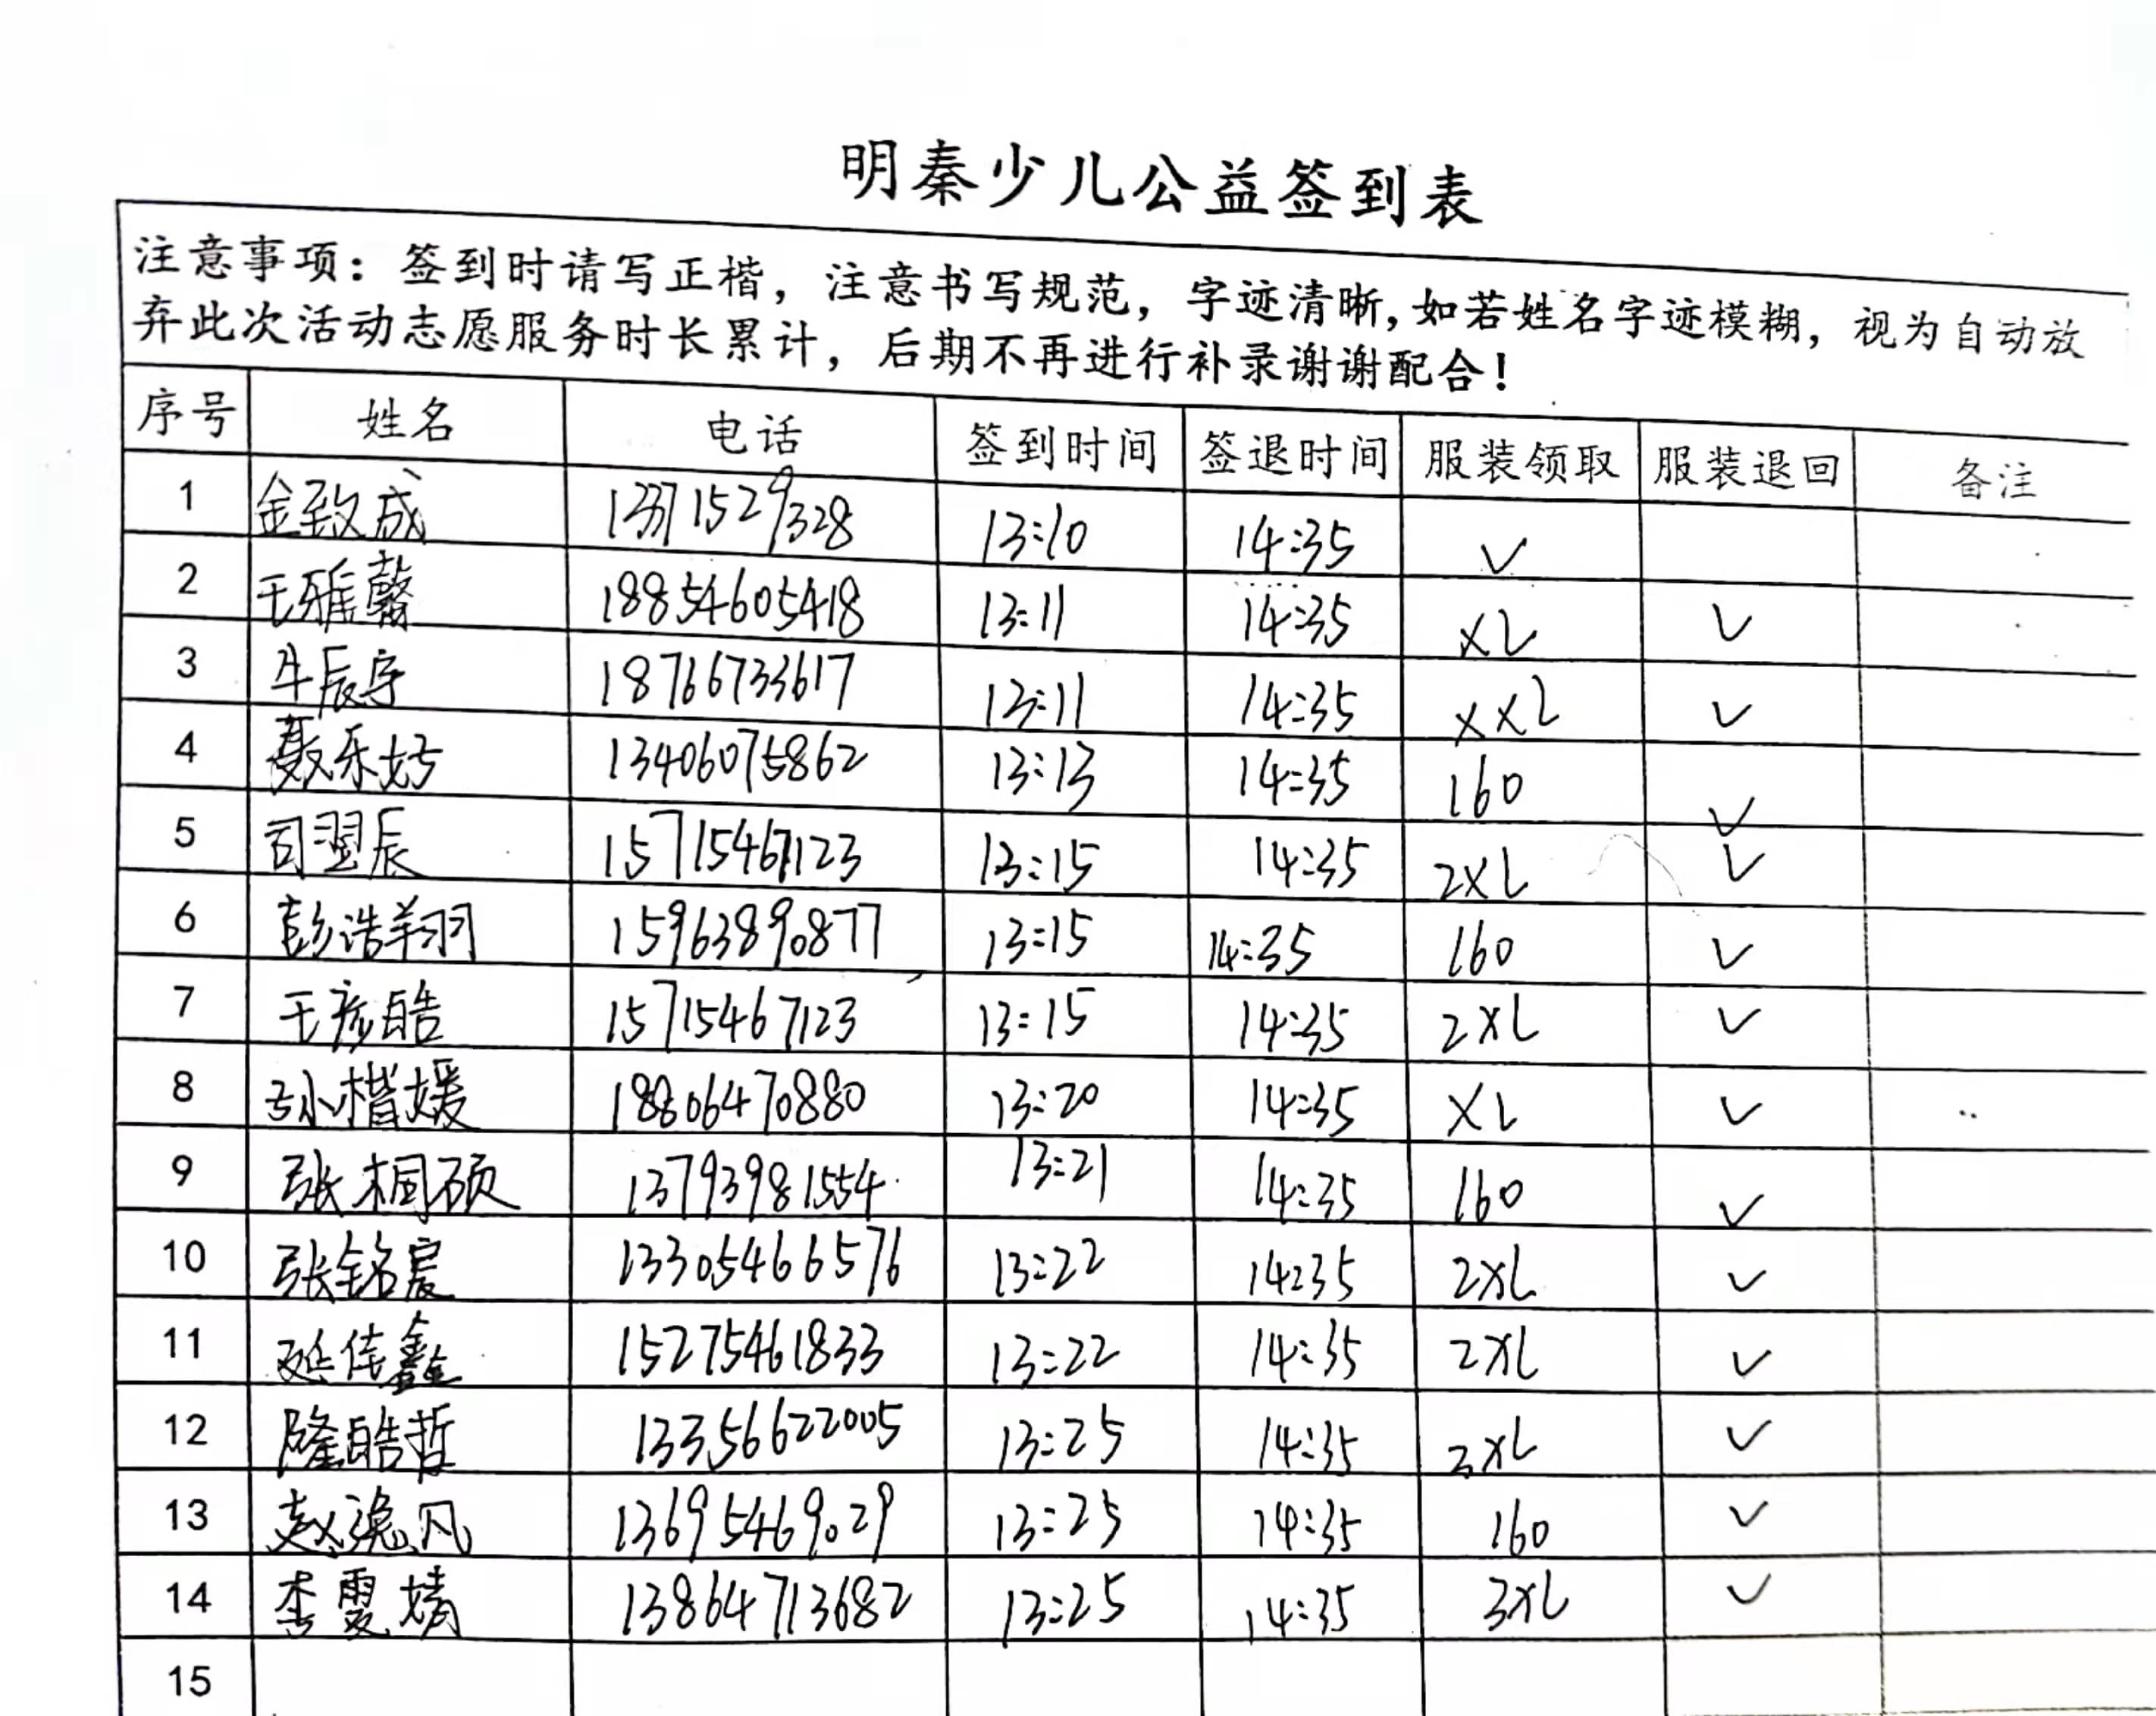 明秦少儿公益签到表
注意事项：签到时请写正楷，注意书写规范，字迹清晰，如若姓名字迹模糊，视为自动放
弃此次活动志愿服务时长累计，后期不再进行补录谢谢配合！
序号 姓名 电话 签到时间 签退时间 服装领取 服装退回 备注
1 金致成 13371529328 13:10 14:35 ✓
2 王雅馨 18854605418 13:11 14:35 XL ✓
3 牛辰宇 18766733617 13:11 14:35 XXL ✓
4 聂乐妤 13406075862 13:13 14:35 160 ✓
5 司翌辰 15715467123 13:15 14:35 2XL ✓
6 彭浩翔 15963890877 13:15 14:35 160 ✓
7 王彦皓 15715467123 13:15 14:35 2XL ✓
8 孙楷媛 18806470880 13:20 14:35 XL ✓
9 张桐硕 13793981554 13:21 14:35 160 ✓
10 张铭宸 13305466576 13:22 14:35 2XL ✓
11 延佳鑫 15275461833 13:22 14:35 2XL ✓
12 隆皓哲 13356622005 13:25 14:35 2XL ✓
13 赵逸凡 13695469029 13:25 14:35 160 ✓
14 李雯婧 13864713682 13:25 14:35 3XL ✓
15